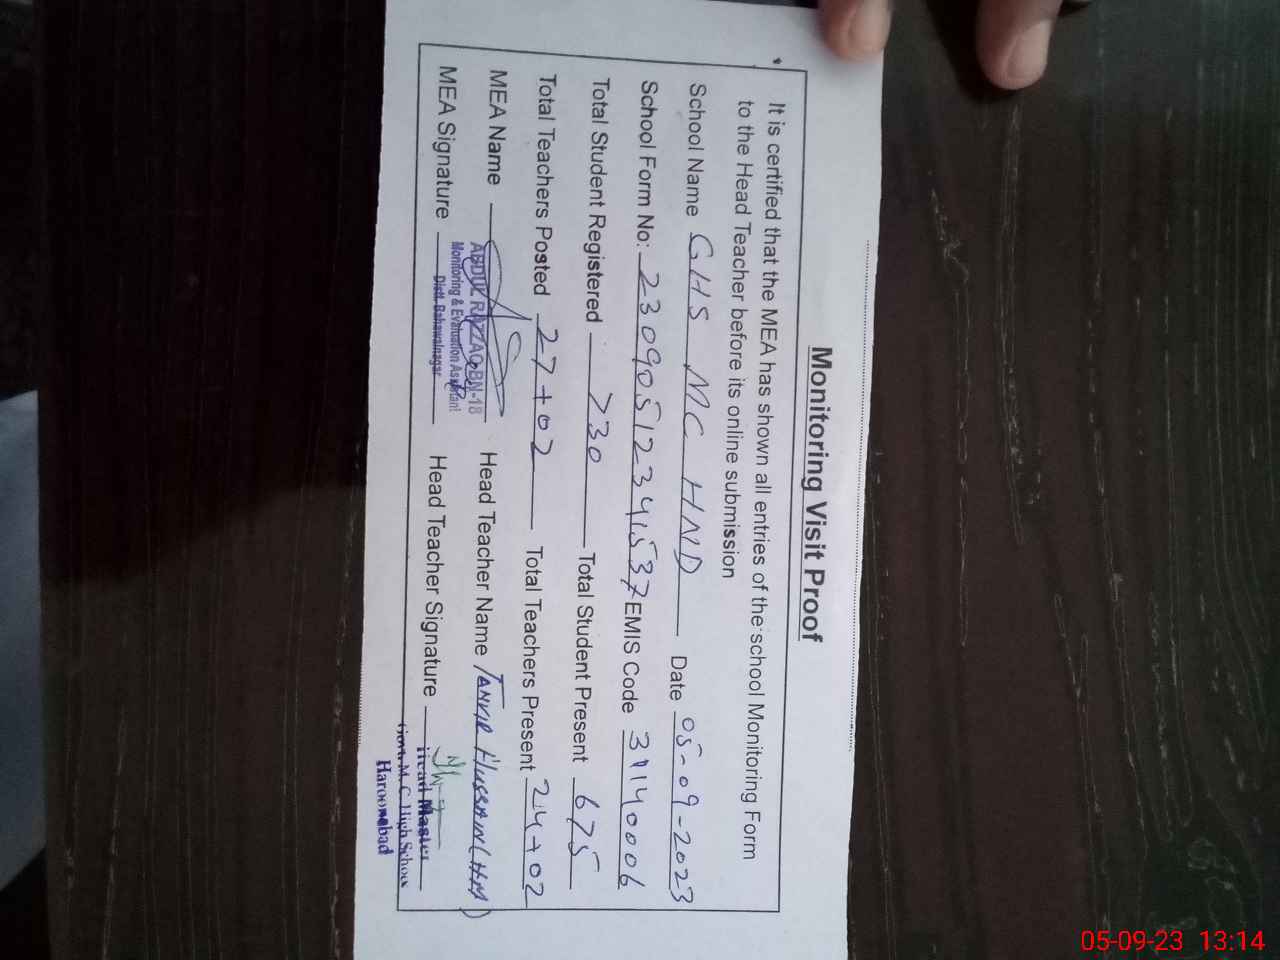 Monitoring Visit Proof
It is certified that the MEA has shown all entries of the school Monitoring Form
to the Head Teacher before its online submission
School Name GHS MC HND Date 05-09-2023
School Form No: 230905123341537 EMIS Code 31140006
Total Student Registered 730 Total Student Present 675
Total Teachers Posted 27+02 Total Teachers Present 24+02
MEA Name Head Teacher Name TANVIR HUSSAIN (HM)
ABDUL RAZZAQ BN-18
Monitoring & Evaluation Assistant
Distt. Bahawalnagar
MEA Signature Head Teacher Signature
Head Master
Govt. M. C. High School
Haroonabad
05-09-23 13:14